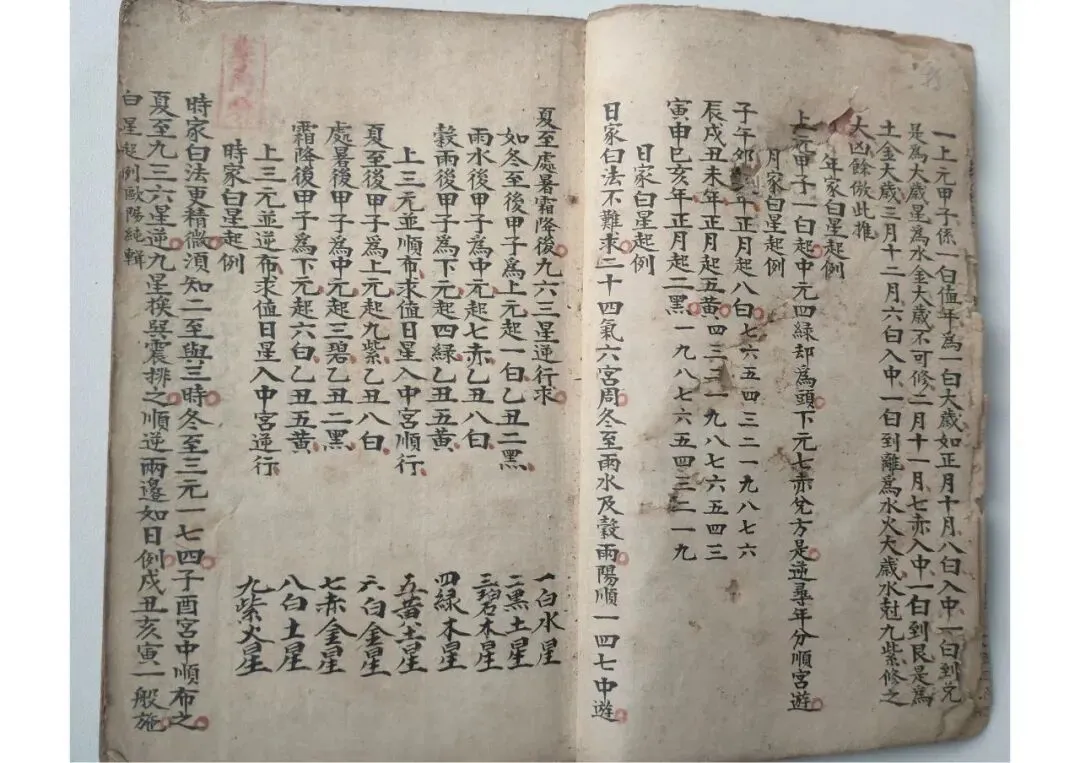 一上元甲子係一白值年為一白大歲如正月十月八白入中一白到兌
是為大歲星為水金大歲不可修二月十一月七赤入中一白到艮是為
土金大歲三月十二月六白入中一白到離為水火大歲水尅九紫修之
大凶餘倣此推
年家白星起例
上元甲子一白起中元四綠却為頭下元七赤兌方是逆尋年分順宮遊
月家白星起例
子午卯年正月起八白七六五四三二一九八七六
辰戌丑未年正月起五黃四三二一九八七六五四三
寅申巳亥年正月起二黑一九八七六五四三二一九
日家白星起例
日家白法不難求二十四氣六宮周冬至雨水及穀雨陽順一四七中遊
夏至處暑霜降後九六三星逆行求
如冬至後甲子為上元起一白乙丑二黑
雨水後甲子為中元起七赤乙丑八白
穀雨後甲子為下元起四綠乙丑五黃
上三元並順布求值日星入中宮順行
夏至後甲子為上元起九紫乙丑八白
處暑後甲子為中元起三碧乙丑二黑
霜降後甲子為下元起六白乙丑五黃
上三元並逆布求值日星入中宮逆行
時家白星起例
時家白法更精微須知二至與三時冬至三元一七四子酉宮中順布之
夏至九三六星逆九星挨巽震排之順逆兩邊如日例戌丑亥寅一般施
白星起例歐陽純輯
一白水星
二黑土星
三碧木星
四綠木星
五黃土星
六白金星
七赤金星
八白土星
九紫火星